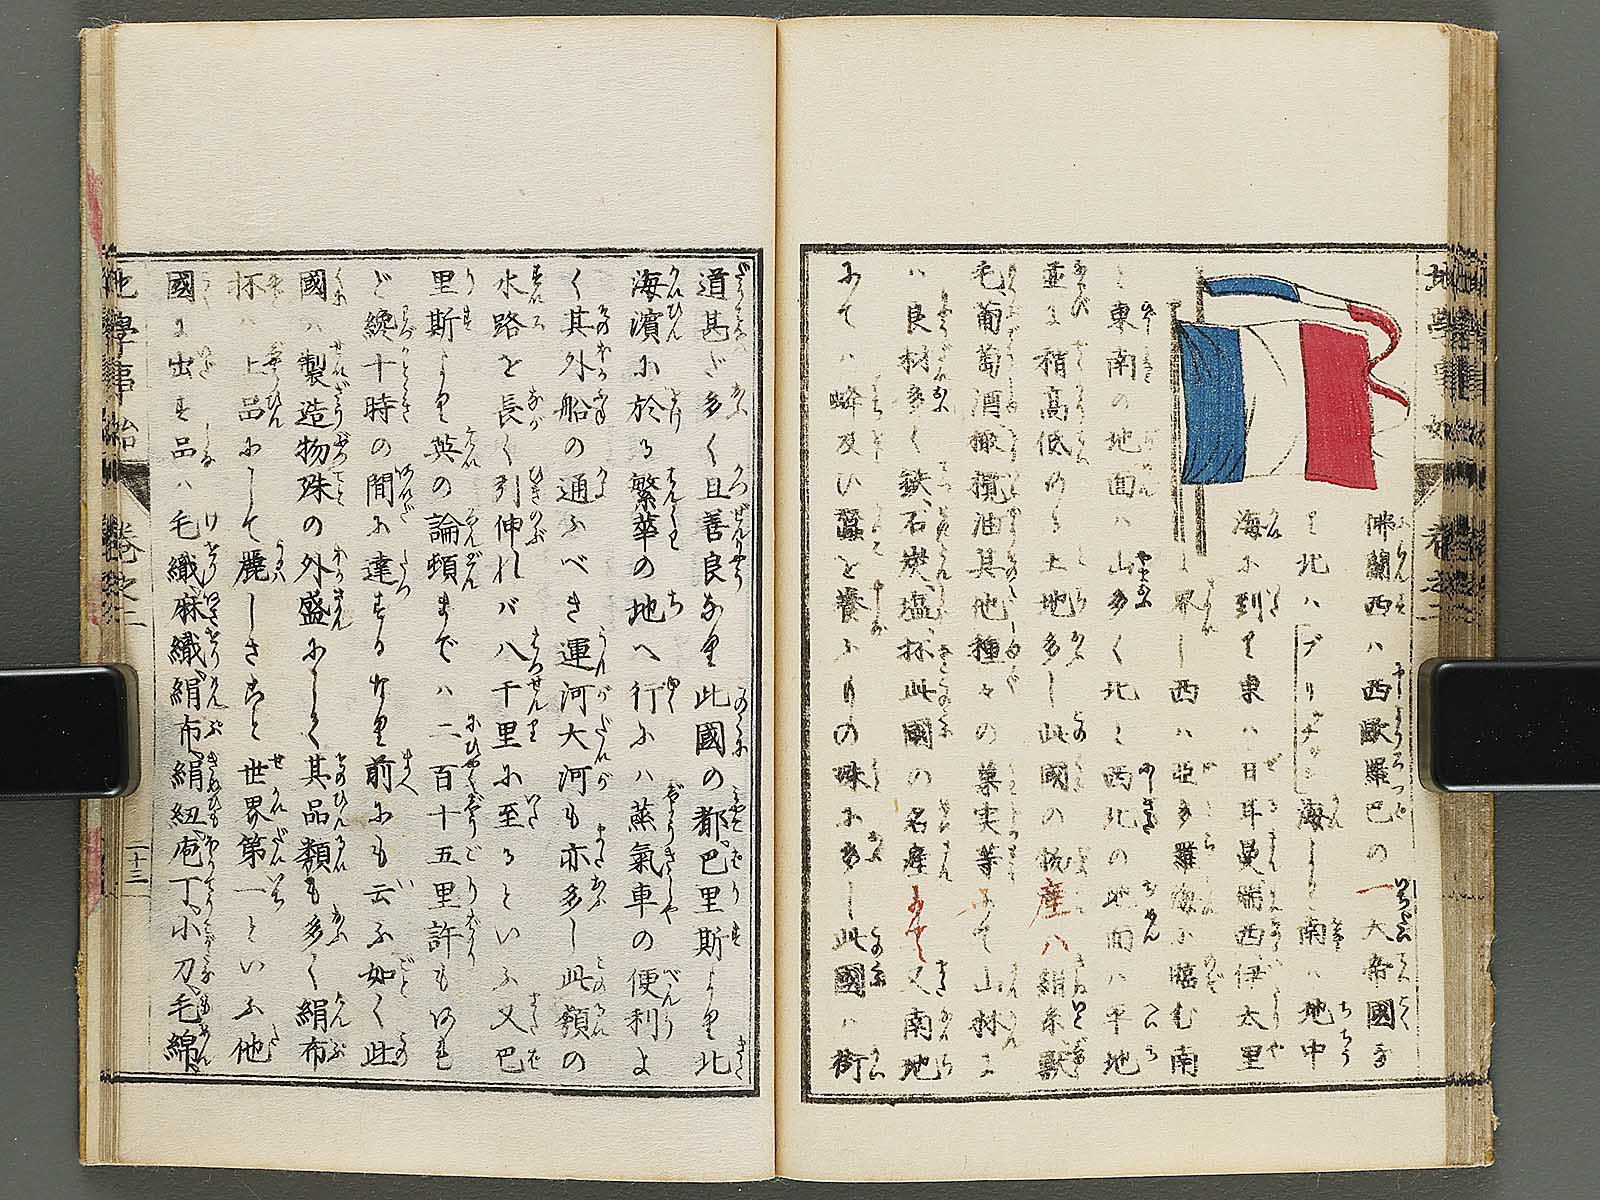 佛蘭西ハ西歐羅巴の一大帝國なり
北ハブリチツシ海と南ハ地中
海に到り東ハ日耳曼瑞西伊太里
と界し西ハ亜多羅海に臨む南
と東南の地面ハ山多く北と西北の地面ハ平地
並に稍高低ある土地多し此國の物産ハ絹糸獣
毛葡萄酒橄欖油其他種々の菓実等にて山林に
ハ良材多く鉄、石炭、塩、抔此國の名産にて又南地
にてハ蜂及ひ蚕を養ふもの殊に多し此國ハ街
道甚だ多く且善良なり此國の都、巴里斯より北
海濱に於る繁華の地へ行ふハ蒸氣車の便利よ
く其外船の通ふべき運河大河も亦多し此類の
水路を長く引伸れバ八千里に至るといふ又巴
里斯より英の論頓までハ二百十五里許もあれ
ど纔十時の間に達するなり前にも云ふ如く此
國ハ製造物殊の外盛にして其品類も多く絹布
抔ハ上品にして麗しきこと世界第一といふ他
國に出す品ハ毛織、麻織、絹布、絹紐、庖丁、小刀、毛綿、
地學事始 卷之二
十三